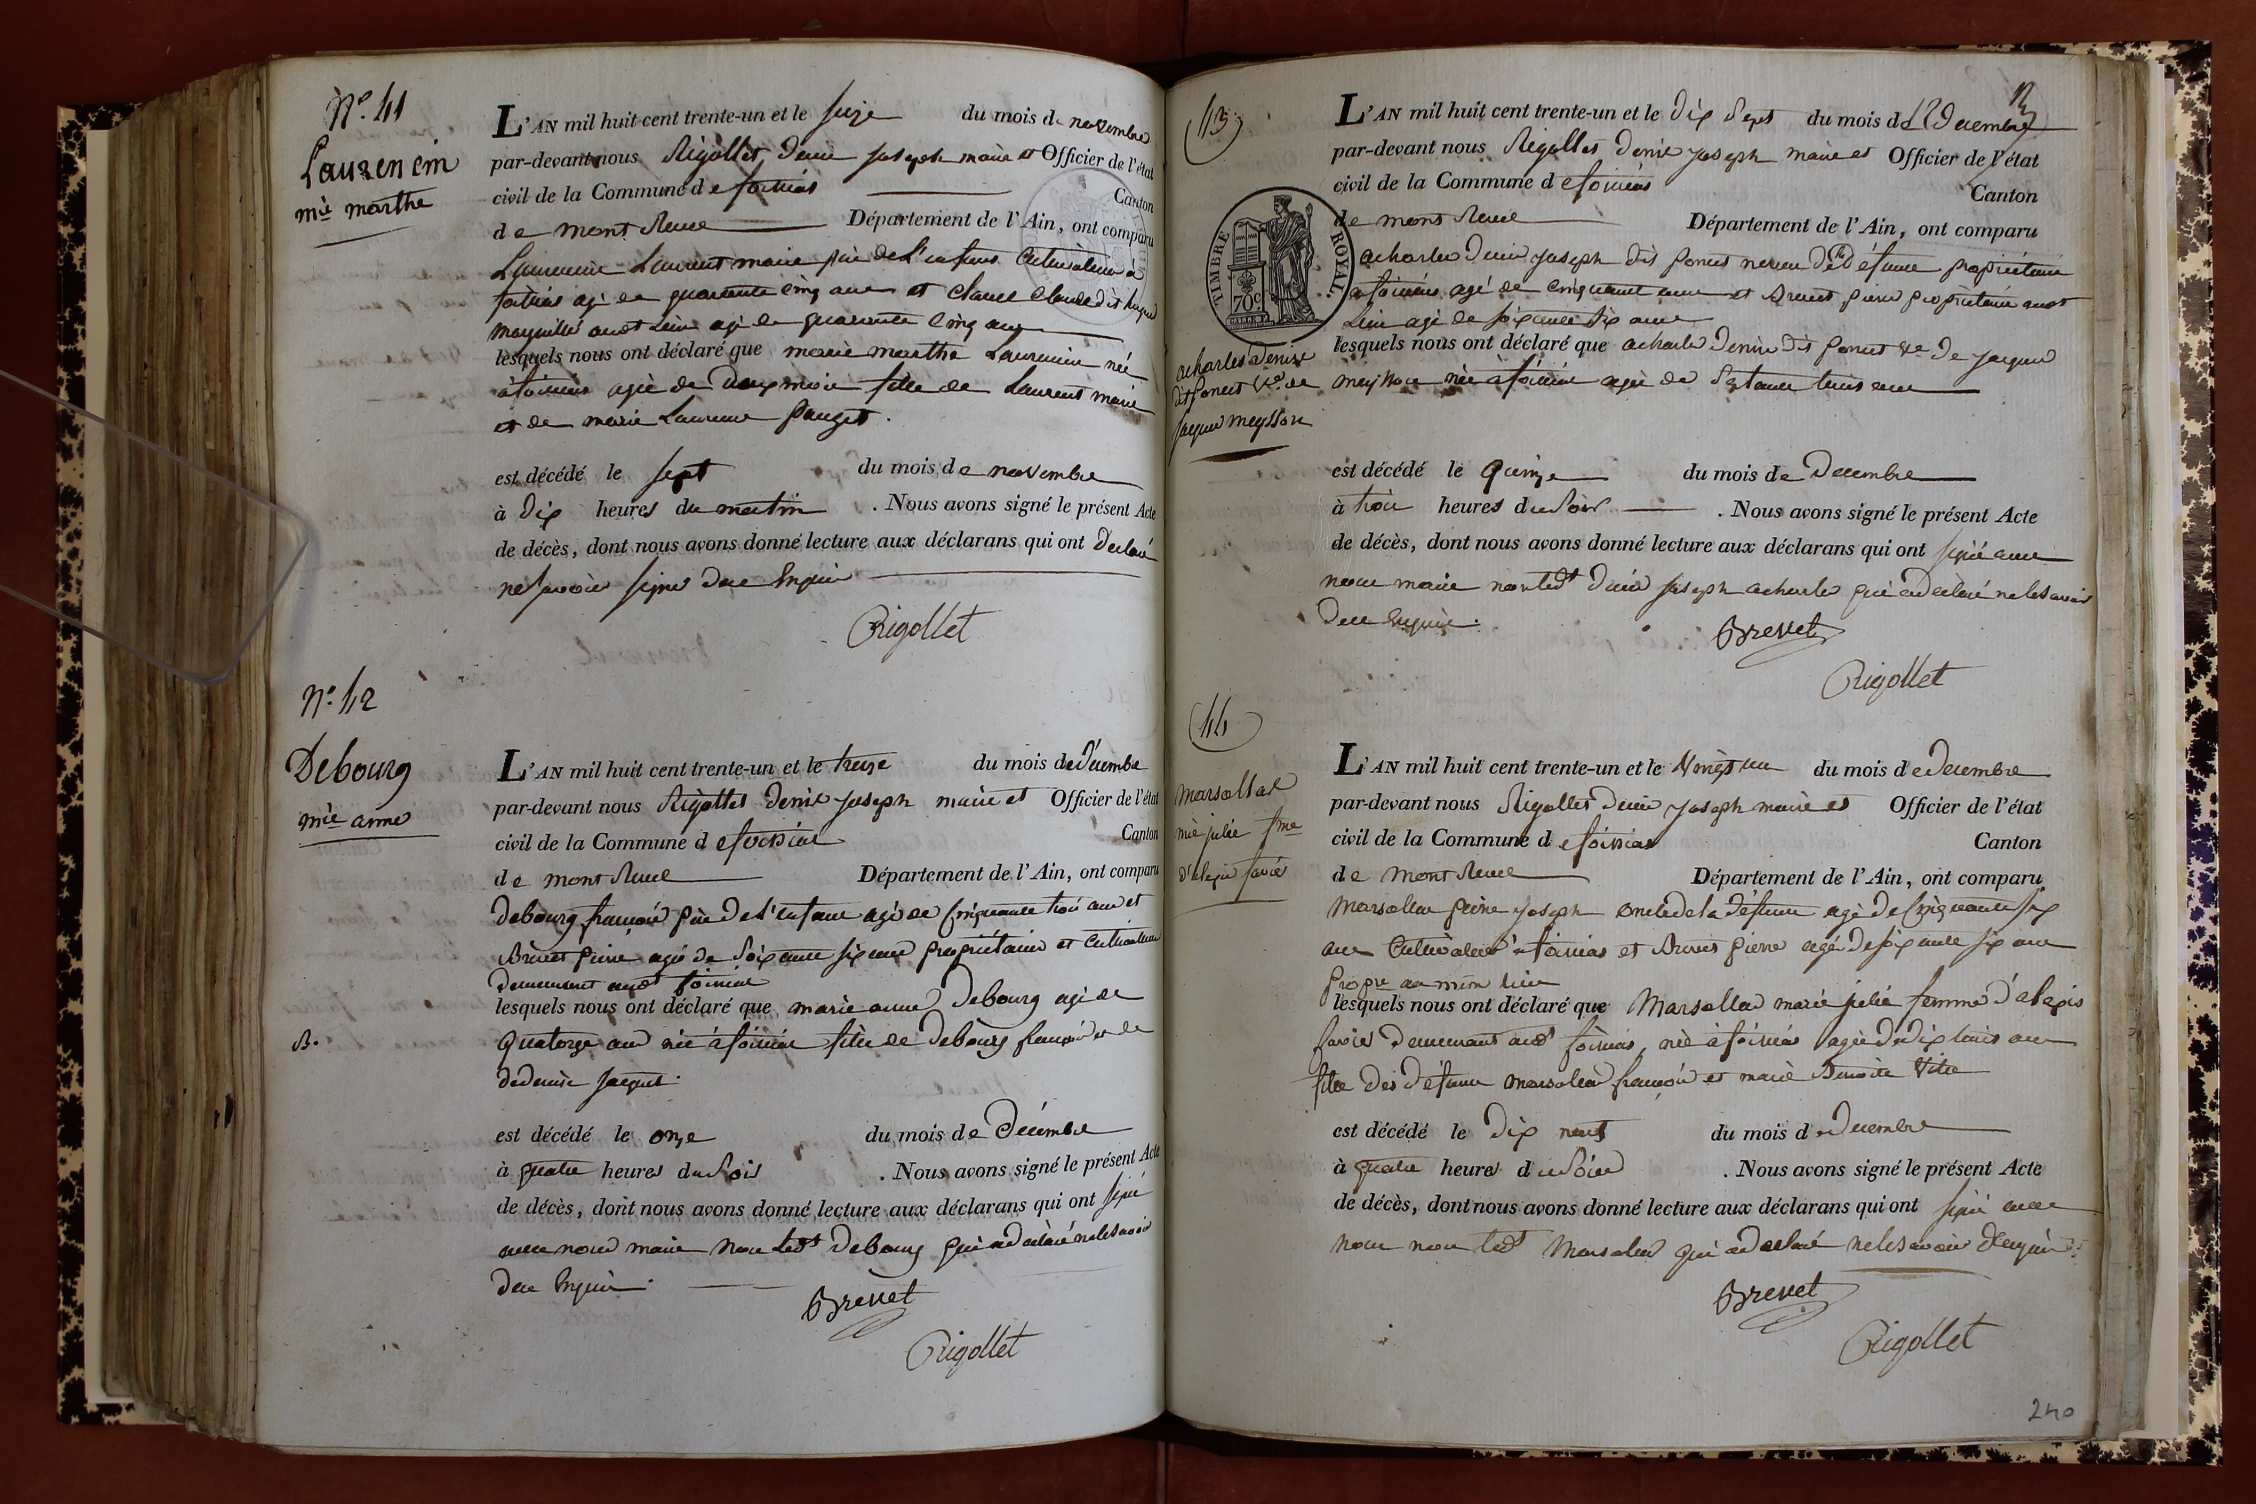 N.° 41
Laurencin
mie marthe
L'AN mil huit cent trente-un et le seize du mois de novembre
par-devant nous Rigollet Denis joseph maire et Officier de l'état
civil de la Commune de foissiat Canton
de montrevel Département de l'Ain, ont comparu
Laurencin Laurent marie père de L'enfant Cultivateur à
foissiat agé de quarante cinq ans et Claude dit
audt Lieu agé de quarante Cinq ans
lesquels nous ont déclaré que marie marthe Laurencin née
à foissiat agée de Deux mois fille de Laurent marie
et de marie Laurence pauget.
est décédé le sept du mois de novembre
à dix heures du matin . Nous avons signé le présent Acte
de décès, dont nous avons donné lecture aux déclarans qui ont declaré
ne savoir signer De ce Enquis
Rigollet
N.° 42
Debourg
mie anne
L'AN mil huit cent trente-un et le treize du mois de décembre
par-devant nous Rigollet denis joseph maire et Officier de l'état
civil de la Commune de foissiat Canton
de montrevel Département de l'Ain, ont comparu
Debourg françois père de L'enfant agé de cinquante trois ans et
Brevet pierre agé de Soixante six ans propriétaire et Cultivateur
demeurant audt foissiat
lesquels nous ont déclaré que marie anne Debourg agée de
B. quatorze ans née à foissiat fille de Debourg françois et de
de denise jacquet.
est décédé le onze du mois de Décembre
à quatre heures du Soir . Nous avons signé le présent Acte
de décès, dont nous avons donné lecture aux déclarans qui ont signé
avec nous maire Non Ledt Debourg qui a déclaré ne le savoir
De ce Enquis.
Brevet
Rigollet
43
12
TIMBRE ROYAL.
70c
acharles denise
dit poncet Ve de
jacques meysson
L'AN mil huit cent trente-un et le dix Sept du mois de Decembre
par-devant nous Rigollet Denis joseph maire et Officier de l'état
civil de la Commune de foissiat Canton
de montrevel Département de l'Ain, ont comparu
acharles Denis joseph dit poncet neveu de la Défunte propriétaire
à foissiat agé de Cinquante ans et Brevet pierre propriétaire audt
Lieu agé de soixante six ans
lesquels nous ont déclaré que acharles denise dit poncet Ve de jacques
meysson née à foissiat agée de Septante trois ans
est décédé le quinze du mois de Decembre
à trois heures du Soir . Nous avons signé le présent Acte
de décès, dont nous avons donné lecture aux déclarans qui ont signé avec
nous maire non Ledt Denis joseph acharles qui a déclaré ne le savoir
De ce Enquis.
Brevet
Rigollet
44
Marsollat
mie julie fme
d'alexis favier
L'AN mil huit cent trente-un et le Vingt un du mois de decembre
par-devant nous Rigollet Denis joseph maire et Officier de l'état
civil de la Commune de foissiat Canton
de montrevel Département de l'Ain, ont comparu
Marsollat pierre joseph oncle de la défunte agé de Cinquante six
ans Cultivateur à foissiat et Brevet pierre agé de soixante six ans
propre au même lieu
lesquels nous ont déclaré que Marsollat marie julie femme d'alexis
favier demeurant audt foissiat, née à foissiat agée de dix huit ans
fille des défunts marsollat françois et marie Benoite
est décédé le dix neuf du mois de decembre
à quatre heures du Soir . Nous avons signé le présent Acte
de décès, dont nous avons donné lecture aux déclarans qui ont signé avec
nous non Ledt Marsollat qui a déclaré ne le savoir d'Enquis
Brevet
Rigollet
240